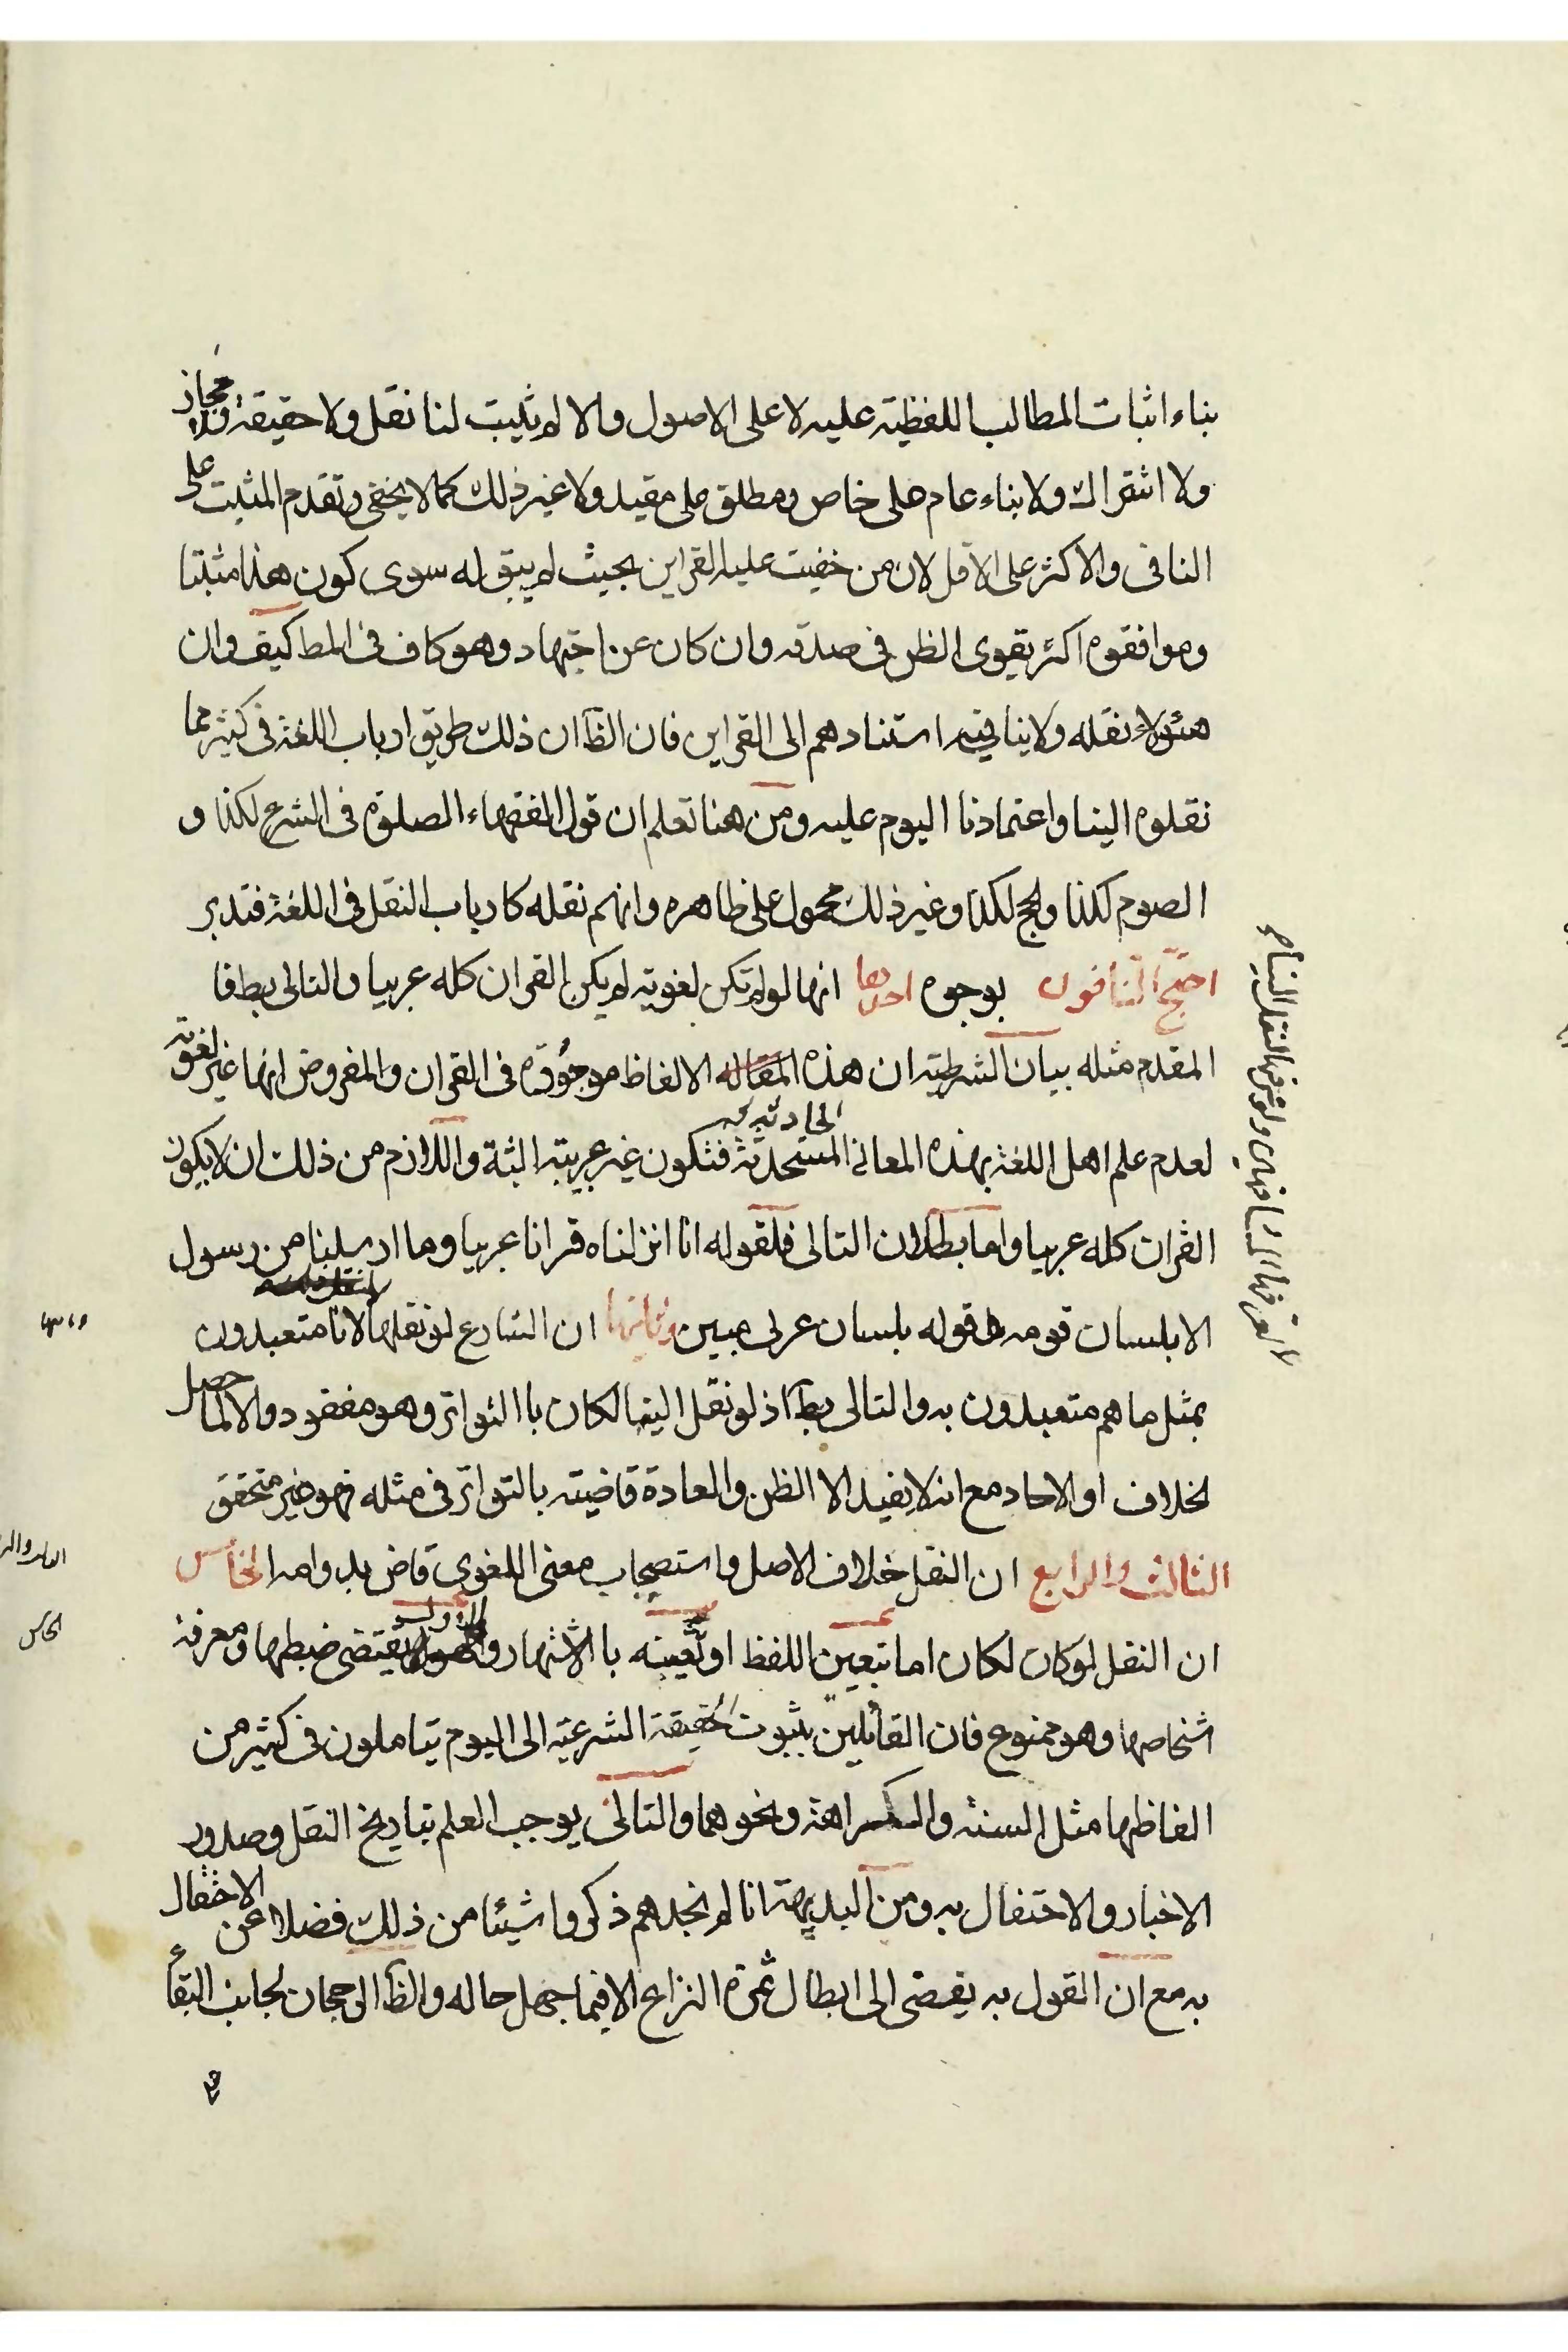 بناء اثبات المطالب اللفظية عليه لا على الاصول والا لم يثبت لنا نقل ولا حقيقة ولا مجاز
ولا اشتراك ولا بناء عام على خاص ومطلق على مقيد ولا غير ذلك كما لا يخفى وتقدم المثبت على
النافى والاكثر على الاقل لان من خفيت عليه القراين بحيث لم يبق له سوى كون هذا مثبتا
وموافقوه اكثر يقوى الظن فى صدقه وان كان عن اجتهاد وهو كاف فى المط كيف وان
هؤلاء نقله ولا ينافيه استنادهم الى القراين فان الظ ان ذلك طريق ارباب اللغة فى كثير مما
نقلوه الينا واعتمادنا اليوم عليه ومن هنا تعلم ان قول الفقهاء الصلوة فى الشرع لكذا و
الصوم لكذا والحج لكذا وغير ذلك محمول على ظاهره وانهم نقله كارباب النقل فى اللغة فتدبر
احتج النافون بوجوه احدها انها لو لم تكن لغوية لم يكن القران كله عربيا والتالى بط فا
المقدم مثله بيان الشرطية ان هذه الالفاظ موجودة فى القران والمفروض انها غير لغوية
لعدم علم اهل اللغة بهذه المعانى المستحدثة الحادثة فتكون غير عربية البتة واللازم من ذلك ان لا يكون
القران كله عربيا واما بطلان التالى فلقوله انا انزلناه قرانا عربيا وما ارسلنا من رسول
الا بلسان قومه قوله بلسان عربى مبين وثانيها ان الشارع لو نقلها لانا متعبدون
بمثل ما هم متعبدون به والتالى بط اذ لو نقل الينا لكان باالتواتر وهو مفقود والا لما حصل
الخلاف او الاحاد مع انه لا يفيد الا الظن والعادة قاضية بالتواتر فى مثله فهو غير متحقق
الثالث والرابع ان النقل خلاف الاصل واستصحاب معنى اللغوى قاض بدوامه الخامس
ان النقل لو كان لكان اما بتعيين اللفظ او تعينه باالاشتهار والاول يقتضى ضبطها ومعرفة
اشخاصها وهو ممنوع فان القائلين بثبوت الحقيقة الشرعية الى اليوم يتاملون فى كثير من
الفاظها مثل السنة والكراهة ونحوهما والتالى يوجب العلم بتاريخ النقل وصدور
الاخبار والاحتفال به ومن البديهة انا لم نجدهم ذكروا شيئا من ذلك فضلا عن الاحتفال
به مع ان القول به يفضى الى ابطال ثمرة النزاع الا فيما جهل حاله والظ الرجحان لجانب البقاء
الخامس